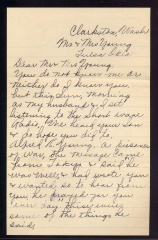 Clarkston, Wash
Mr & Mrs Young
Tulsa Okla.
Dear Mr & Mrs Young
You do not know me or
neither do I know you,
but this Sun. Morning
as my husband & I set
listening to the short wave
Radio, We heard your son
& do hope you did to.
Alfred R. Young, a prisoner
of War. The message came
from Tokyo & said he
was well & had wrote you
& wanted so to hear from
you he prayed you were
some of the things he
said.